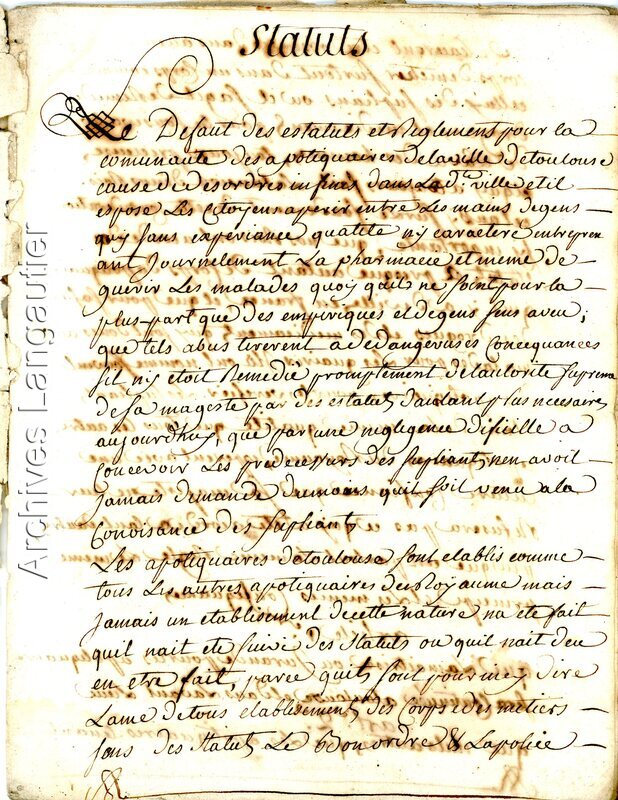 Statuts
Le Defaut des estatuts et Reglement pour la
comunauté des apotiquaires dela ville detoulouse
cause de desordres infinis dans Lad. ville et il
expose Les Citoyens aperir entre Les mains degens
quy sans experiance qualité ny caractere entrepren
ant Journelement La pharmacie et meme de
guerir Les malades quoy quils ne soint pour la
plus-part que des empiriques et degens sens aveu;
que tels abus tirerent a dedangereuses Concequances
sil ny etoit Remedié promptement delautorité Suprema
desa magesté par des estatuts dautant plus necesaires
aujourdhuy, que par une neglegence dificille a
Concevoir Les predecesseurs des supliants nen avoit
Jamais demandé dumoins quil soit venu ala
Conoisance des supliants
Les apotiquaires detoulousa sont etablis comme
tous Les autres apotiquaires du Royaume mais
Jamais un etablisement decette nature na eté fait
quil nait eté suivi des Statuts ou quil nait deu
en etre fait, parce quils sont pour insy dire
Lame detous etablisements des Corps et des metiers
sans des Statuts Le Bon ordre & Lapolice
Archives Langautier